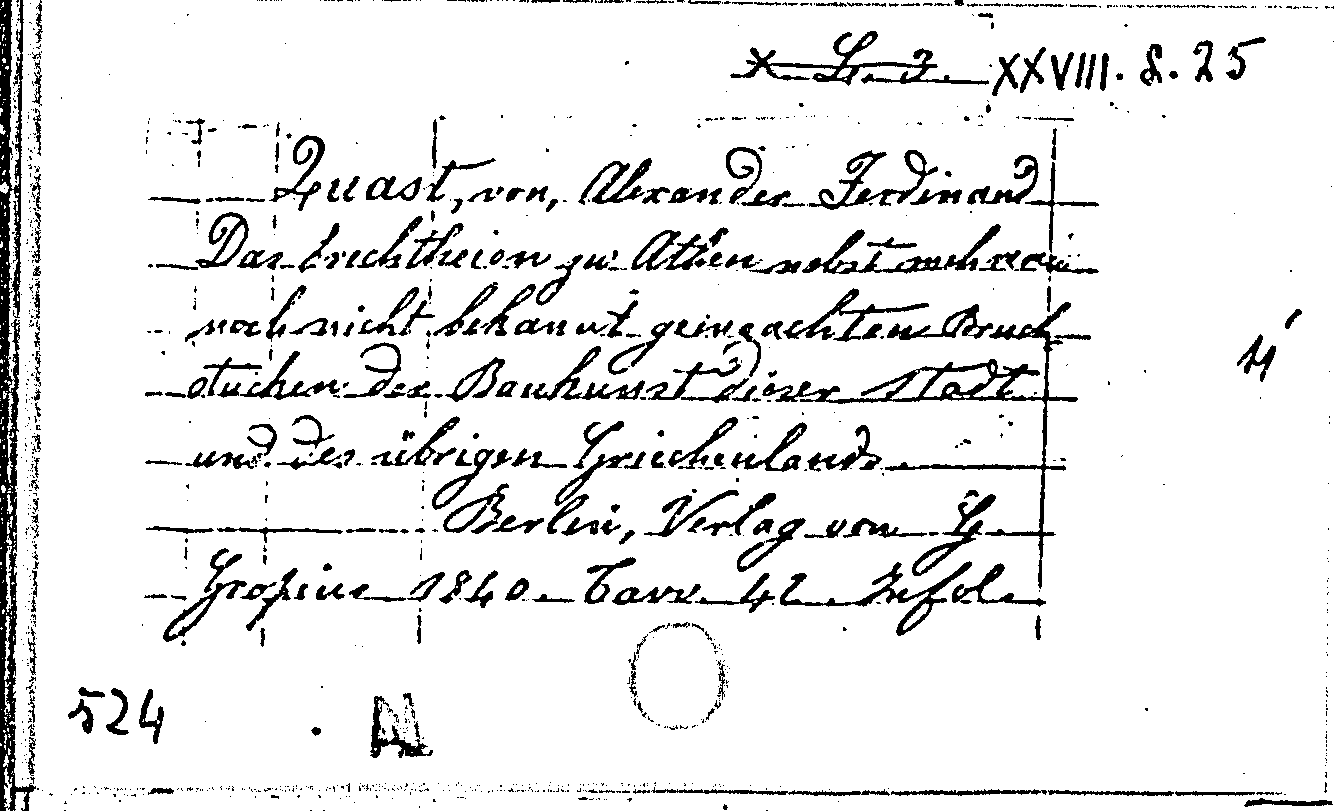 X. G. 3. XXVIII. G. 25
Quast, von, Alexander Ferdinand
Das Erechtheion zu Athen nebst mehreren
noch nicht bekannt gemachten Bruch
stucken der Baukunst dieser Stadt
und des übrigen Griechenlands.
Berlin, Verlag von G.
Gropius 1840. Tavv. 42. In fol.
524